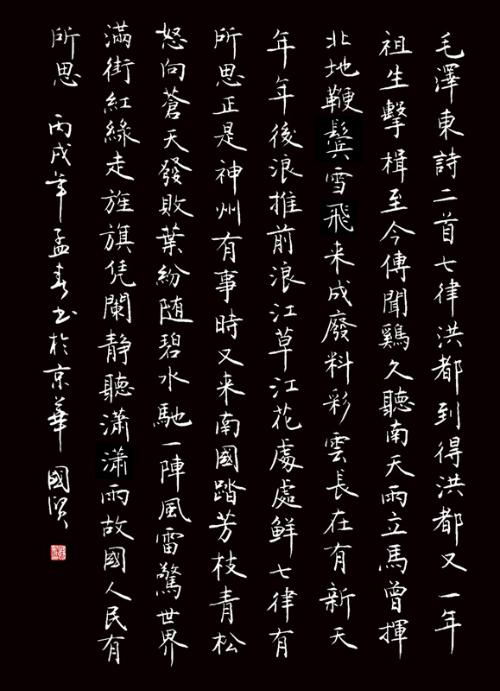 毛澤東詩二首七律洪都到得洪都又一年
祖生擊楫至今傳聞鷄久聽南天雨立馬曾揮
北地鞭鬢雪飛来成廢料彩雲長在有新天
年年後浪推前浪江草江花處處鮮七律有
所思正是神州有事時又来南國踏芳枝青松
怒向蒼天發敗葉紛随碧水馳一陣風雷驚世界
滿街紅綠走旌旗凭闌靜聽瀟瀟雨故國人民有
所思 丙戌年孟春书於京華 國贤